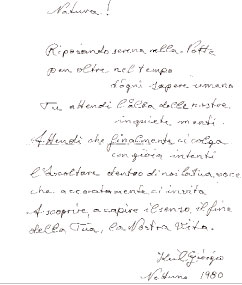 Natura!
Riposando serena nella Notte
pur oltre nel tempo
d'ogni sapere umano
Tu attendi l'alba delle nostre
inquiete menti.
Attendi che finalmente ci colga
con gioia intenti
l'ascoltare dentro di noi la tua voce
che accoratamente ci invita
A scoprire, a capire il senso, il fine
della Tua, la Nostra Vita.
Giorgio
1980